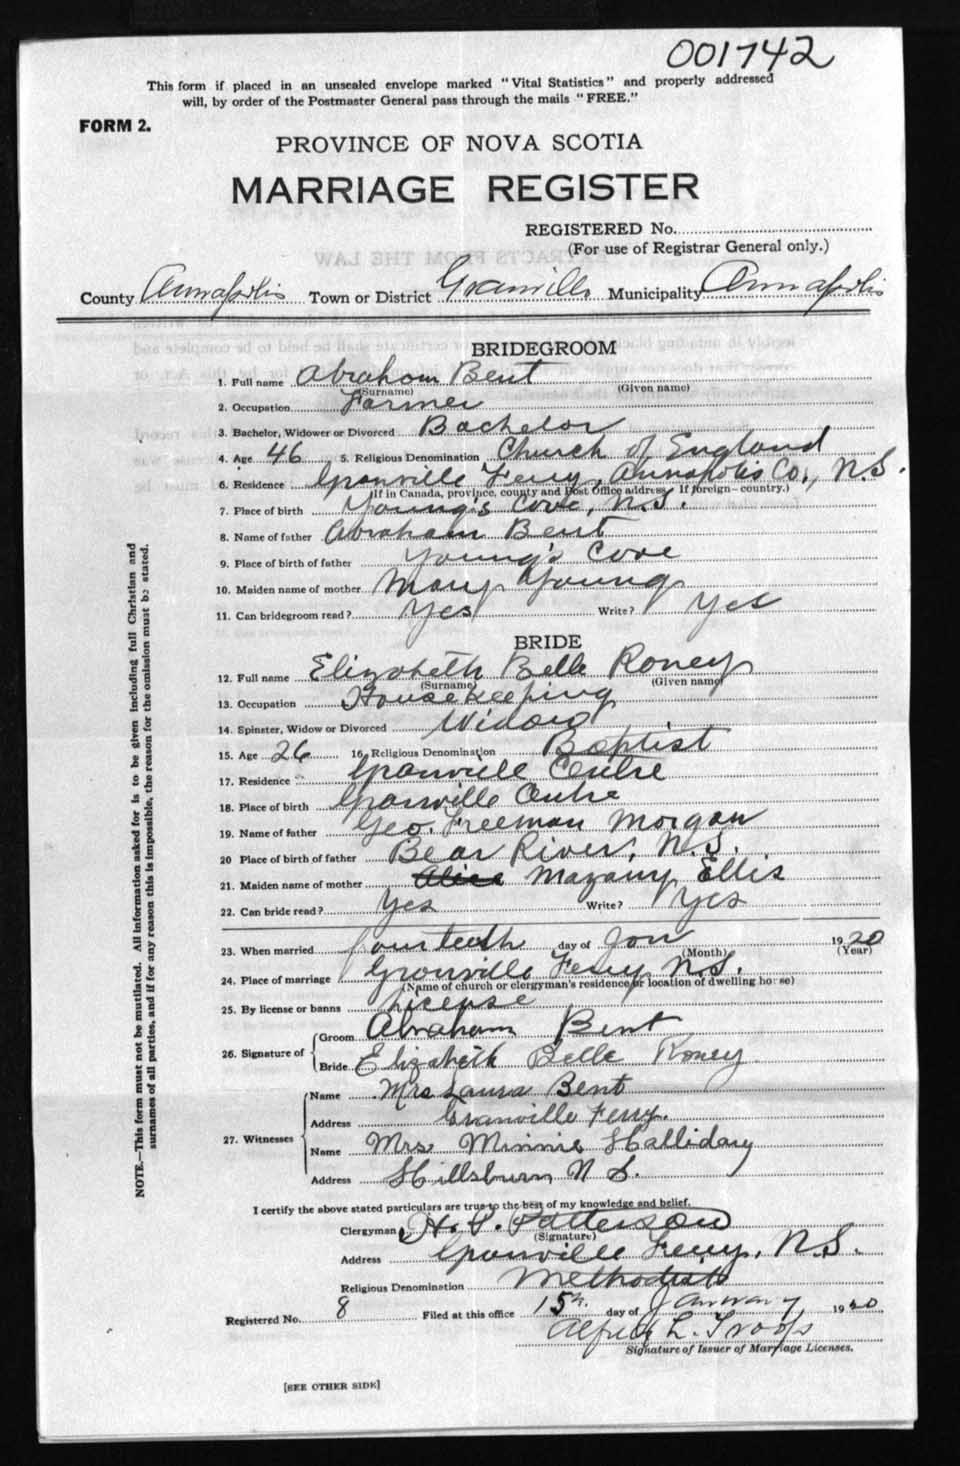 001742
This form if placed in an unsealed envelope marked "Vital Statistics" and properly addressed
will, by order of the Postmaster General pass through the mails "FREE."
FORM 2.
PROVINCE OF NOVA SCOTIA
MARRIAGE REGISTER
REGISTERED No.
(For use of Registrar General only.)
County Annapolis Town or District Granville Municipality Annapolis
BRIDEGROOM
1. Full name Abraham Bent
(Surname) (Given name)
2. Occupation Farmer
3. Bachelor, Widower or Divorced Bachelor
4. Age 46 5. Religious Denomination Church of England
6. Residence Granville Ferry, Annapolis Co., N.S.
(If in Canada, province, county and Post Office address. If foreign—country.)
7. Place of birth Young's Cove, N.S.
8. Name of father Abraham Bent
9. Place of birth of father Young's Cove
10. Maiden name of mother Mary Young
11. Can bridegroom read? Yes Write? Yes
BRIDE
12. Full name Elizabeth Belle Roney
(Surname) (Given name)
13. Occupation Housekeeping
14. Spinster, Widow or Divorced Widow
15. Age 26 16. Religious Denomination Baptist
17. Residence Granville Centre
18. Place of birth Granville Centre
19. Name of father Geo. Freeman Morgan
20 Place of birth of father Bear River, N.S.
21. Maiden name of mother Alice Mazany Ellis
22. Can bride read? Yes Write? Yes
23. When married fourteeth day of Jan 1920
(Month) (Year)
24. Place of marriage Granville Ferry N.S.
(Name of church or clergyman's residence or location of dwelling house)
25. By license or banns License
26. Signature of Groom Abraham Bent
Bride Elizabeth Belle Roney
27. Witnesses Name Mrs Laura Bent
Address Granville Ferry.
Name Mrs Minnie Halliday
Address Hillsburn N S.
I certify the above stated particulars are true to the best of my knowledge and belief.
Clergyman Patterson
(Signature)
Address Granville Ferry, N.S.
Religious Denomination Methodist
Registered No. 8 Filed at this office 15th. day of January 1920
Alfred L. Troop
Signature of Issuer of Marriage Licenses.
[SEE OTHER SIDE]
NOTE.—This form must not be mutilated. All information asked for is to be given including full Christian and
surnames of all parties, and if for any reason this is impossible, the reason for the omission must be stated.